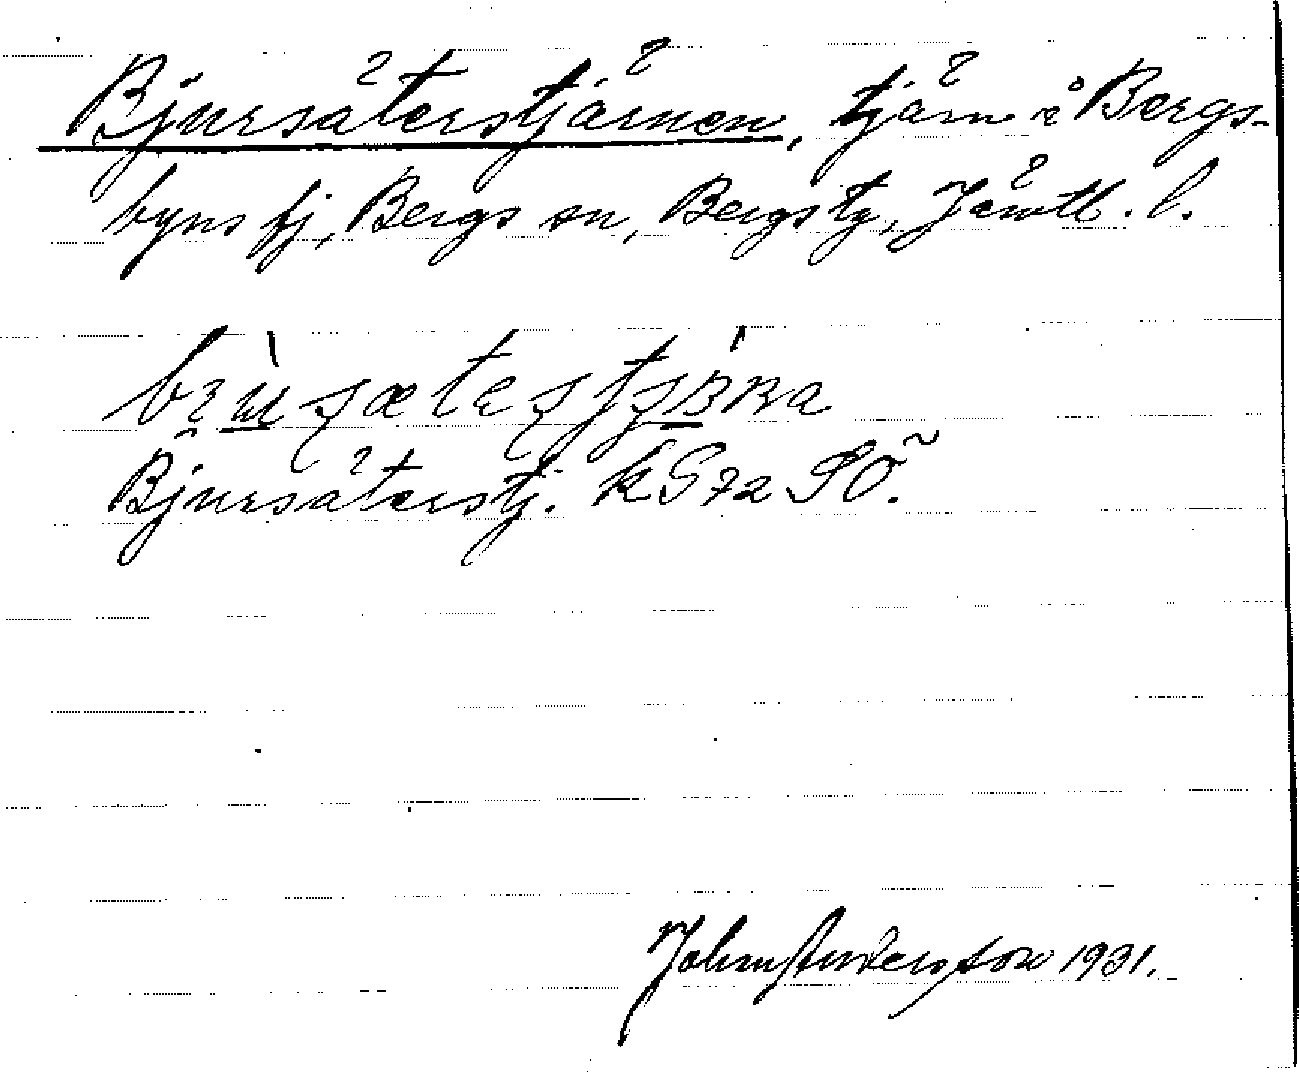 Bjursäterstjärnen, tjärn i Bergs-
byns fj, Bergs sn, Bergs tg, Jämtl. l.
Bjursäterstj. kG72 SO.
John Andersson 1931.